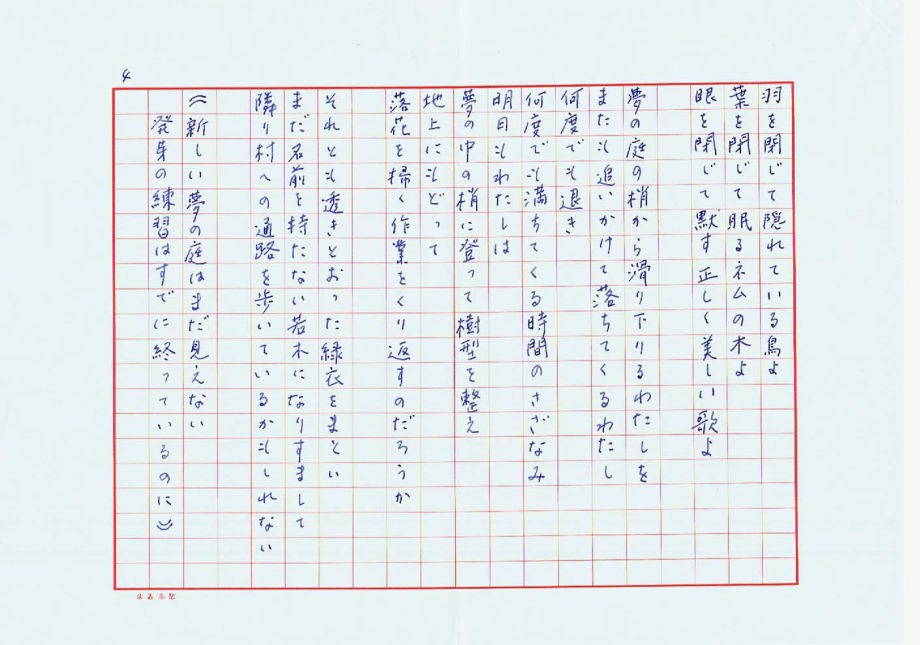 4
羽を閉じて隠れている鳥よ
葉を閉じて眠るネムの木よ
眼を閉じて黙す正しく美しい歌よ
夢の庭の梢から滑り下りるわたしを
またも追いかけて落ちてくるわたし
何度でも退き
何度でも満ちてくる時間のさざなみ
明日もわたしは
夢の中の梢に登って樹型を整え
地上にもどって
落花を掃く作業をくり返すのだろうか
それとも透きとおった緑衣をまとい
まだ名前を持たない若木になりすまして
隣り村への通路を歩いているかもしれない
⟪新しい夢の庭はまだ見えない
発芽の練習はすでに終っているのに⟫